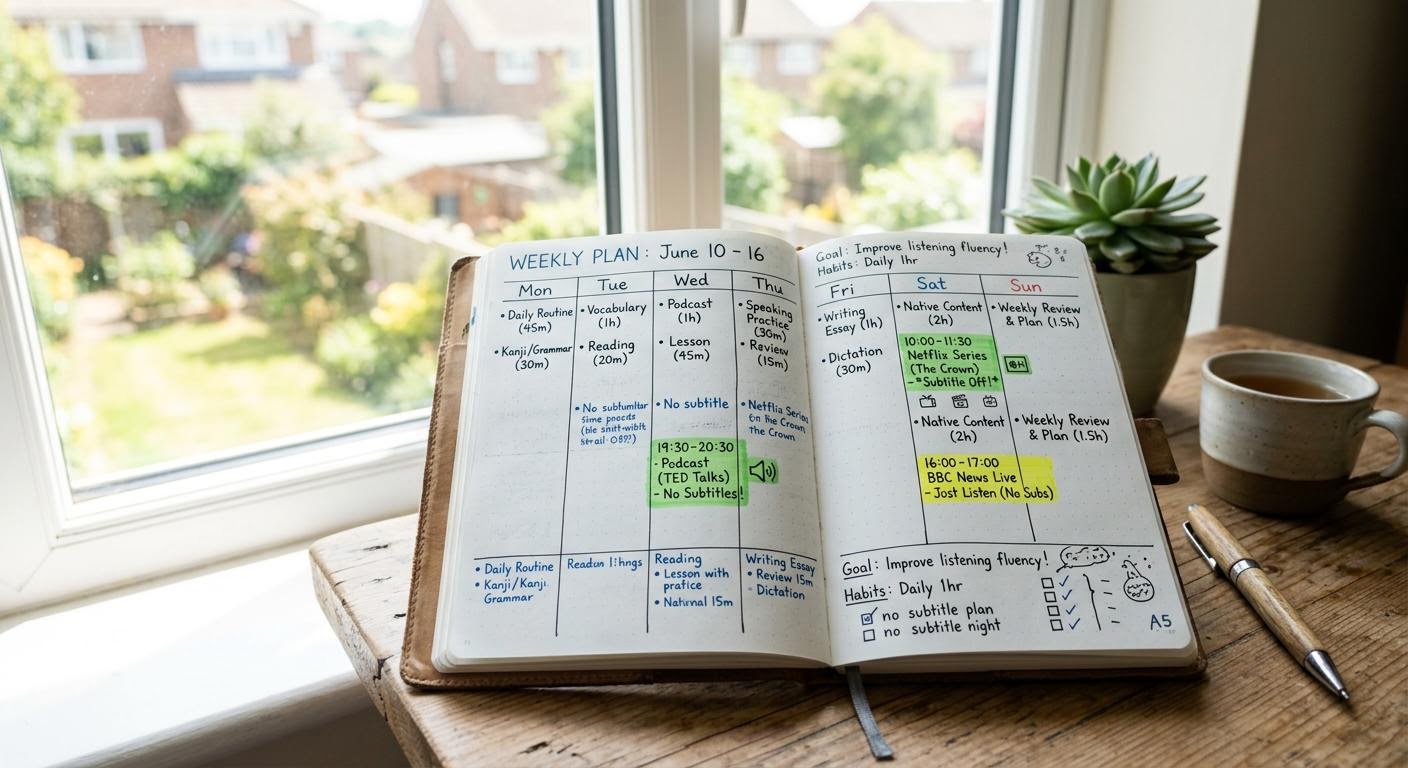 WEEKLY PLAN : June 10 - 16
Mon
• Daily Routine
(45m)
• Kanji/Grammar
(30m)
Tue
• Vocabulary
(1h)
• Reading
(20m)
• No
Wed
• Podcast
(1h)
• Lesson
(45m)
• No subtitle
19:30-20:30
- Podcast
(TED Talks)
- No Subtitles!
Thu
• Speaking
Practice
(30m)
• Review
(15m)
• Netflia Series
the Crown
the Crown
• Daily Routine
• Kanji/Kanji.
Grammar
Reading
• Lesson with
• 15m
Writing Essay
• Review 15m
• Dictation
Goal: Improve listening fluency!
Habits: Daily 1hr
Fri
• Writing
Essay (1h)
• Dictation
(30m)
Sat
• Native Content
(2h)
10:00-11:30
Netflix Series
(The Crown)
- "Subtitle Off!"
• Native Content
(2h)
16:00-17:00
BBC News Live
- Jost Listen (No Subs)
Sun
• Weekly Review
& Plan (1.5h)
• Weekly Review
& Plan (1.5h)
Goal: Improve listening fluency!
Habits: Daily 1hr
no subtitle plan
no subtitle night
A5